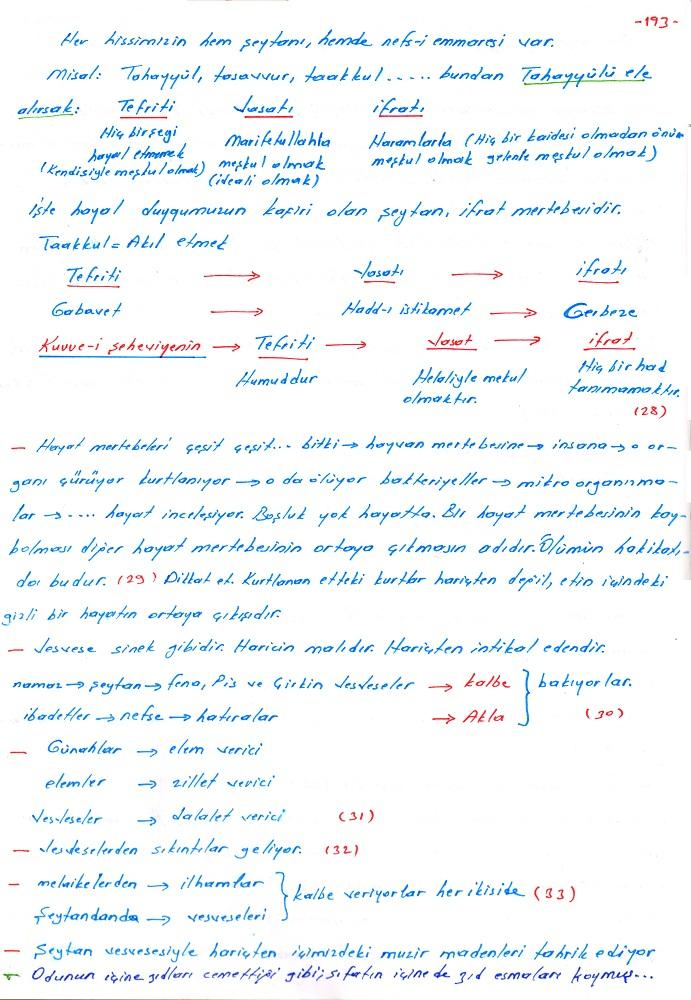 -193-
Her hissimizin hem şeytanı, hemde nefs-i emmaresi var.
Misal: Tahayyül, tasavvur, taakkul ..... bundan Tahayyülü ele
alırsak: Tefriti Vasatı ifratı
Hiç birşeyi hayal etmemek (Kendisiyle meşkul olmak)
Marifetullahla meşkul olmak (ideali olmak)
Haramlarla (Hiç bir kaidesi olmadan önüne
meşkul olmak gelenle meşkul olmak)
İşte hayal duygumuzun kafiri olan şeytan, ifrat mertebesidir.
Taakkul = Akıl etmek
Tefriti → Vasatı → ifratı
Gabavet → Hadd-ı istikamet → Cerbeze
Kuvve-i şeheviyenin → Tefriti → Vasat → ifrat
Humuddur Helaliyle mekul olmaktır. Hiç bir had tanımamaktır.
(28)
— Hayat mertebeleri çeşit çeşit... bitki → hayvan mertebesine → insana → o or-
ganı çürüyor kurtlanıyor → o da ölüyor bakteriyeller → mikro organızma-
lar → .... hayat inceleşiyor. Boşluk yok hayatta. Bir hayat mertebesinin kay-
bolması diğer hayat mertebesinin ortaya çıkmasın adıdır. Ölümün hakikatı-
da budur. (29) Dikkat et. Kurtlanan etteki kurtlar hariçten değil, etin içindeki
gizli bir hayatın ortaya çıkışıdır.
— Vesvese sinek gibidir. Haricin malıdır. Hariçten intikal edendir.
namaz → şeytan → fena, Pis ve Çirkin Vesveseler → kalbe } bakıyorlar.
ibadetler → nefse → hatıralar → Akla } (30)
— Günahlar → elem verici
elemler → zillet verici
Vesveseler → dalalet verici (31)
— Vesveselerden sıkıntılar geliyor. (32)
— melaikelerden → ilhamlar } kalbe veriyorlar her ikiside (33)
Şeytandanda → vesveseleri
— Şeytan vesvesesiyle hariçten içimizdeki muzir madenleri tahrik ediyor
— Odunun içine zıdları cemettiği gibi, sıfatın içinede zıd esmaları koymuş...